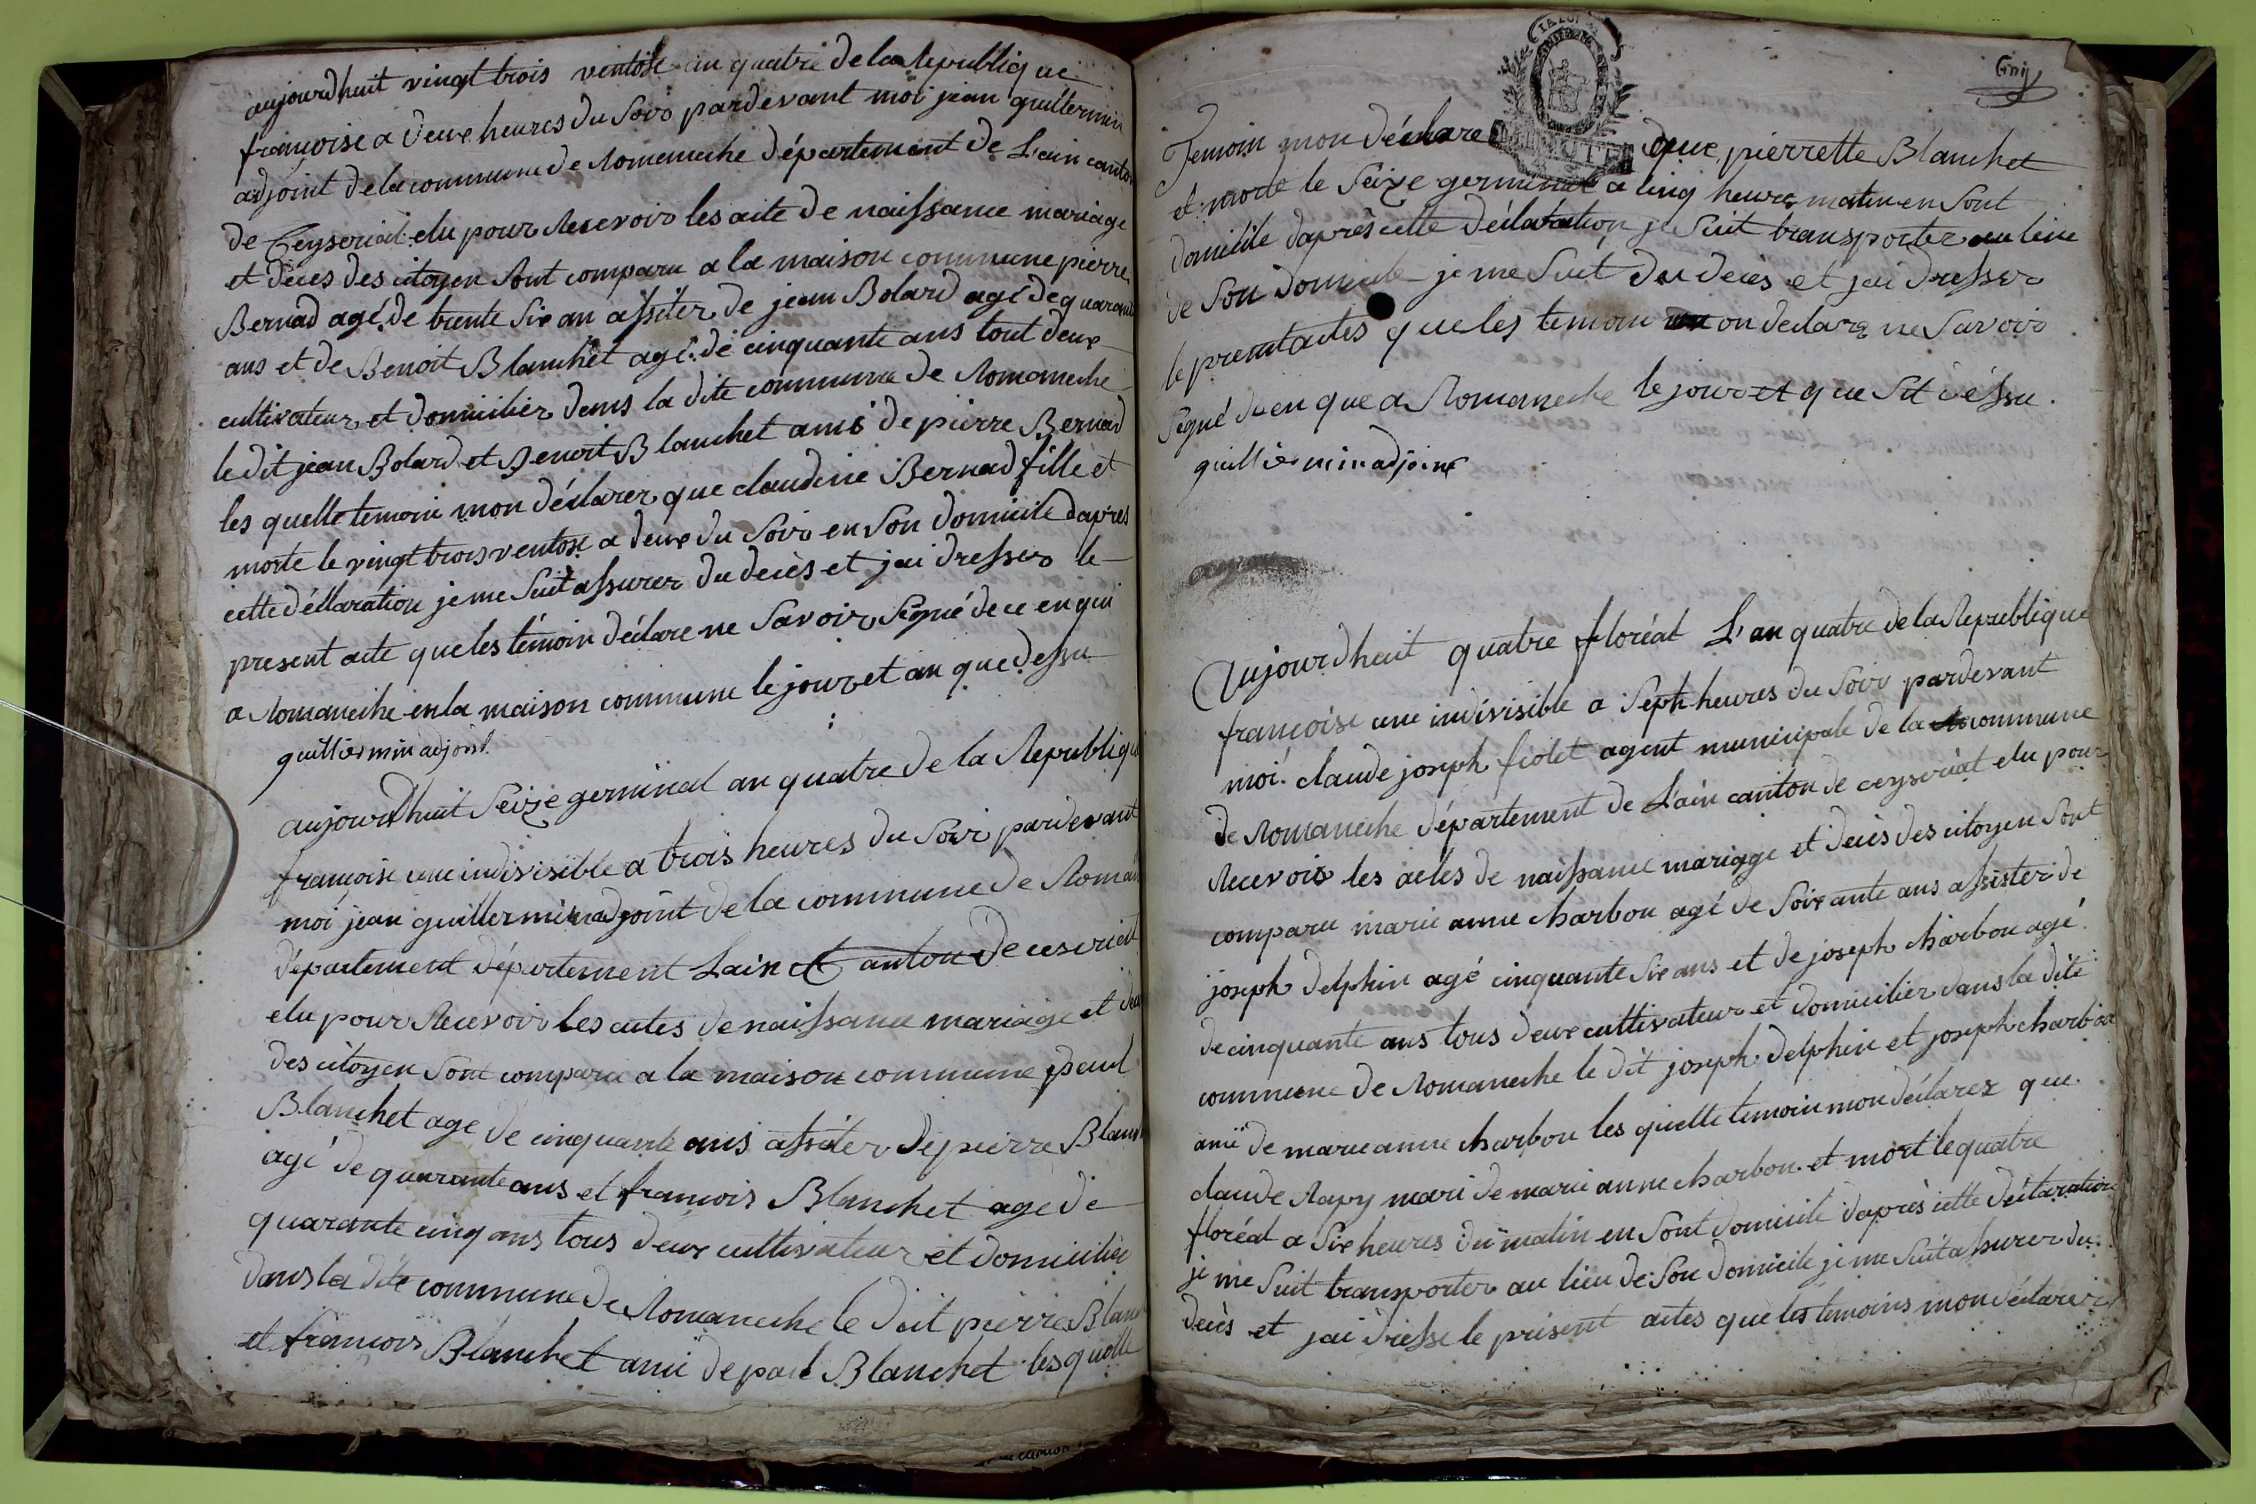 aujourdhuit vingt trois ventose an quatre de la republique
françoise a deux heures du soir pardevant moi jean guillermin
adjoint de la commune de Romaneche département de L'ain canton
de Ceyseriat elu pour recevoir les acte de naissance mariage
et décès des citoyen sont comparu a la maison commune pierre
Bernad agé de trente six an assiter de jean Bolard agé de quarante
ans et de Benoit Blanchet agé de cinquante ans tout deux
cultivateur et domicilier dans la dite commune de Romaneche
le dit jean Bolard et Benoit Blanchet ami de pierre Bernad
les quelle temoin mon déclarer que claudine Bernad fille et
morte le vingt trois ventose a deux du soir en son domicile dapres
cette déclaration je me suit assurer du décès et jai dresser le
present acte que les témoin déclare ne savoir signé de ce en qui
a Romaneche en la maison commune le jour et an que dessu
guillermin adjoint
aujourdhuit seize germinal an quatre de la Republique
françoise une indivisible a trois heures du soir pardevant
moi jean guillermin adjoint de la commune de Roman
département département Lain et canton de ceseriat
elu pour recevoir les actes de naissance mariage et
des citoyen sont comparu a la maison commune paul
Blanchet age de cinquante ans assiter de pierre Blan
agé de quarante ans et francois Blanchet age de
quarante cinq ans tous deux cultivateur et domicilier
dans la dite commune de Romaneche le dit pierre Blan
et francois Blanchet ami de paul Blanchet les quelle
Temoin mon déclare que pierrette Blanchet
et morte le seize germinal a cinq heures matin en sont
domicile daprès cette déclaration je suit transporter au lieu
de son domicile je me suit du decès et jai dresser
le presnt actes que les temoin on declare ne savoir
signé de en que a Romaneche le jour et que sit déssu.
guillermin adjoint
Aujourdhuit quatre floréal L'an quatre de la Republique
françoise une indivisible a seph heures du soir pardevant
moi claude joseph fiolet agent municipale de la commune
de Romaneche département de L'ain canton de ceyseriat elu pour
Recevoir les actes de naissance mariage et décès des citoyen sont
comparu marie anne charbon agé de soixante ans assister de
joseph delphin agé cinquante six ans et de joseph charbon agé
de cinquante ans tous deux cultivateur et domicilier dans la dite
commune de Romaneche le dit joseph delphin et joseph charbon
ami de marie anne charbon les quielle temoin mon déclarez que
claude Ravy mari de marie anne charbon et mort le quatre
floréal a six heures du matin en sont domicile daprès cette déclaration
je me suit transporter au lieu de son domicile je me suit assurer du
décès et jai dresse le présent actes que les temoins mon déclarer